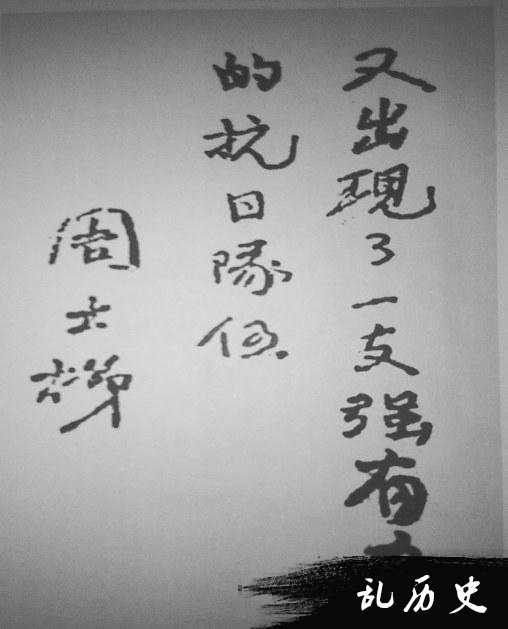 又出現了一支强有
的抗日隊伍
周士梯
乱历史